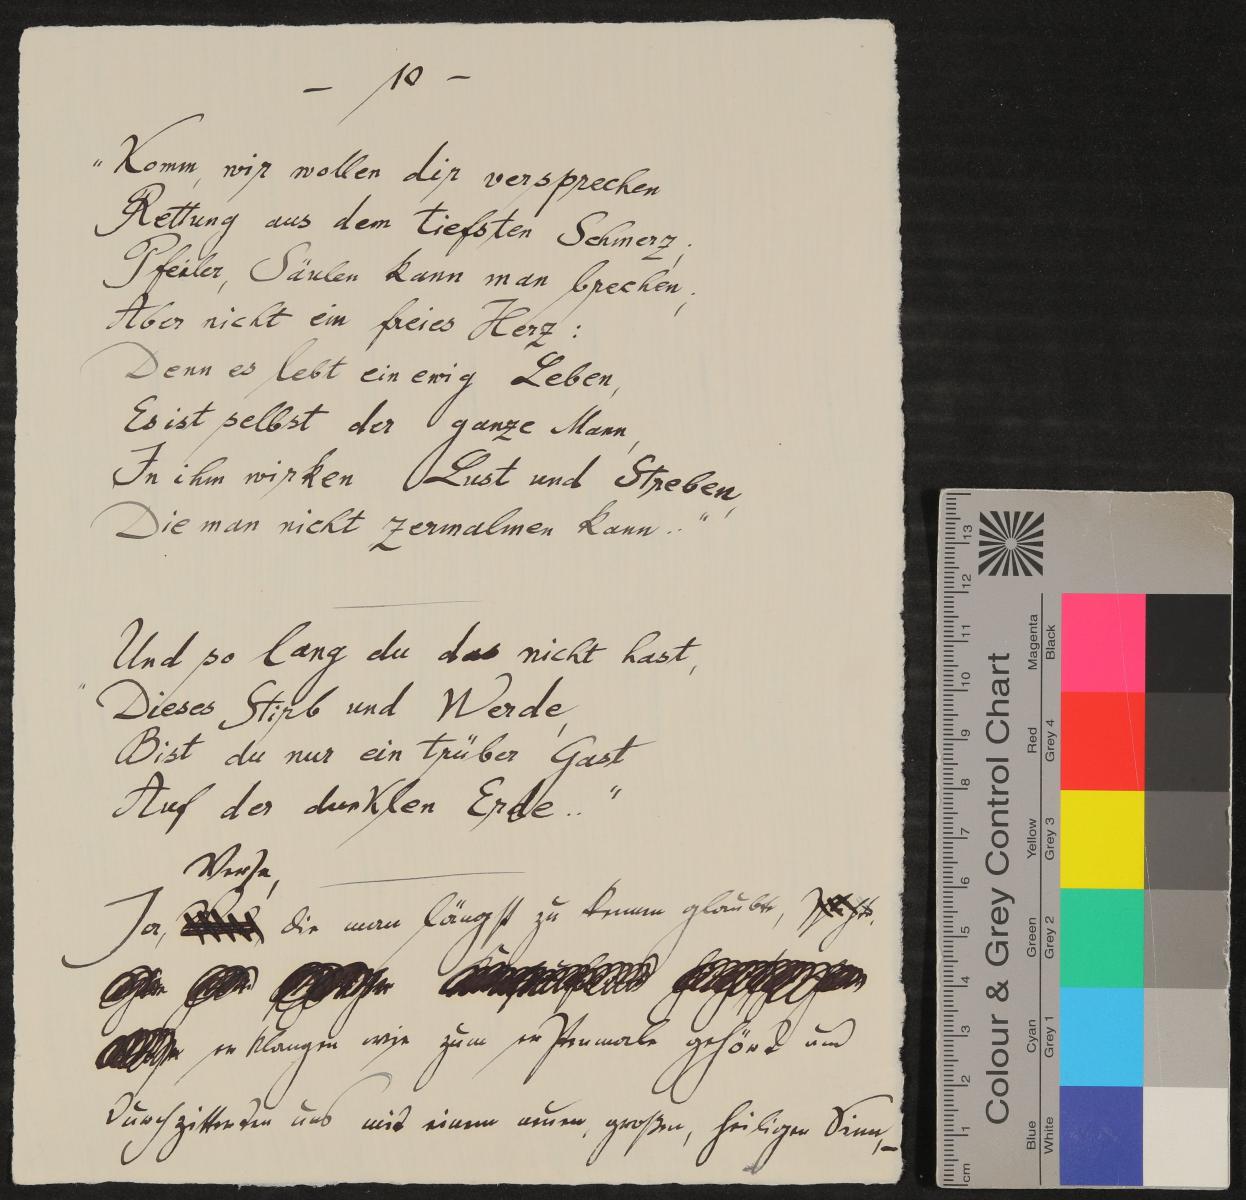 — 10 —
"Komm, wir wollen dir versprechen
Rettung aus dem tiefsten Schmerz;
Pfeiler, Säulen kann man brechen,
Aber nicht ein freies Herz:
Denn es lebt ein ewig Leben,
Es ist selbst der ganze Mann,
In ihm wirken Lust und Streben,
Die man nicht zermalmen kann.."
Und so lang du das nicht hast,
"Dieses Stirb und Werde,
Bist du nur ein trüber Gast
Auf der dunklen Erde.."
Verse,
Ja, die man längst zu kennen glaubte,
erklangen wie zum erstenmale gehört und
durchzitterten uns mit einem neuen, großen, heiligen Sinn,—
Colour & Grey Control Chart
Blue Cyan Green Yellow Red Magenta
White Grey 1 Grey 2 Grey 3 Grey 4 Black
cm 1 2 3 4 5 6 7 8 9 10 11 12 13